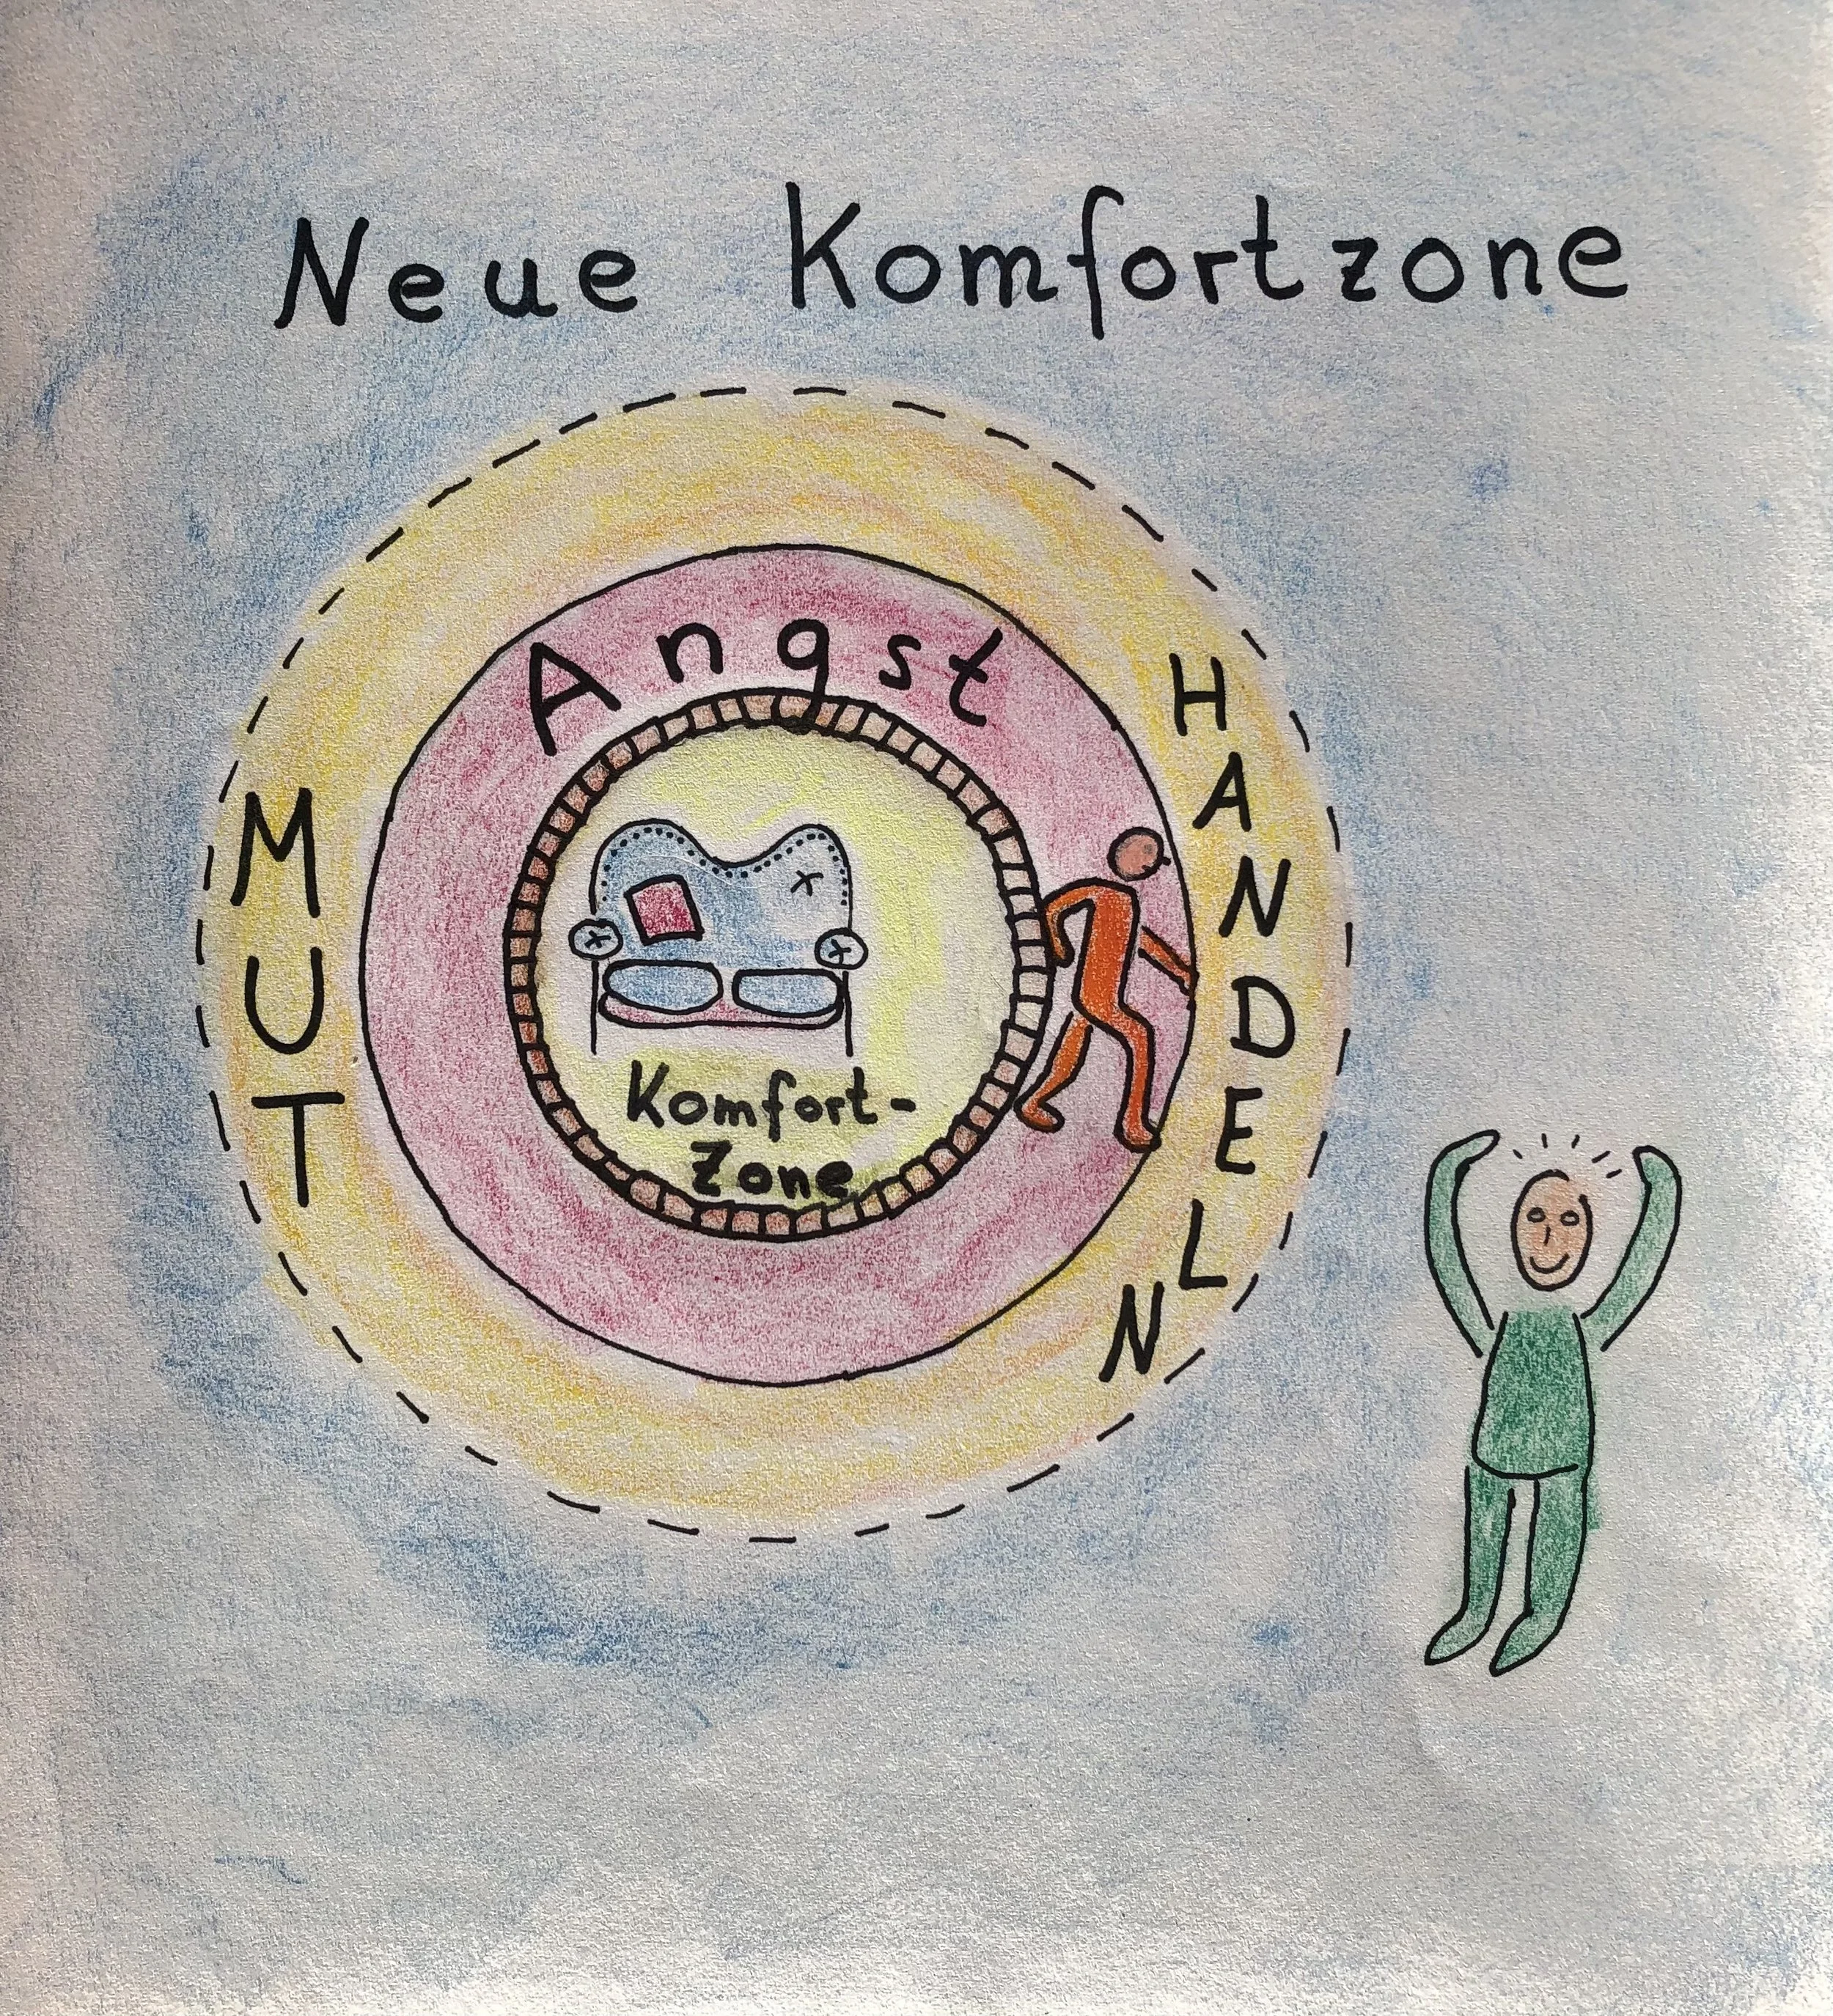 Neue Komfortzone
Angst
MUT
HANDELN
Komfort-
Zone